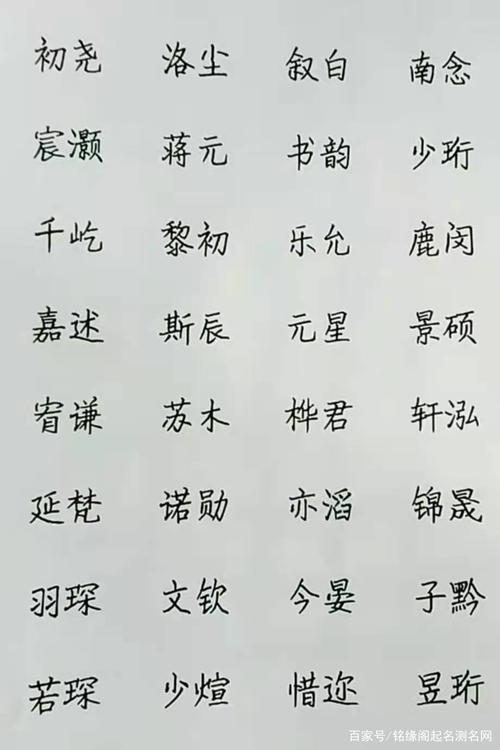 初尧 洛尘 叙白 南念
宸灏 蒋元 书韵 少珩
千屹 黎初 乐允 鹿闵
嘉述 斯辰 元星 景硕
宥谦 苏木 桦君 轩泓
延梵 诺勋 亦滔 锦晟
羽琛 文钦 今晏 子黔
若琛 少煊 惜迩 昱珩
百家号/铭缘阁起名测名网